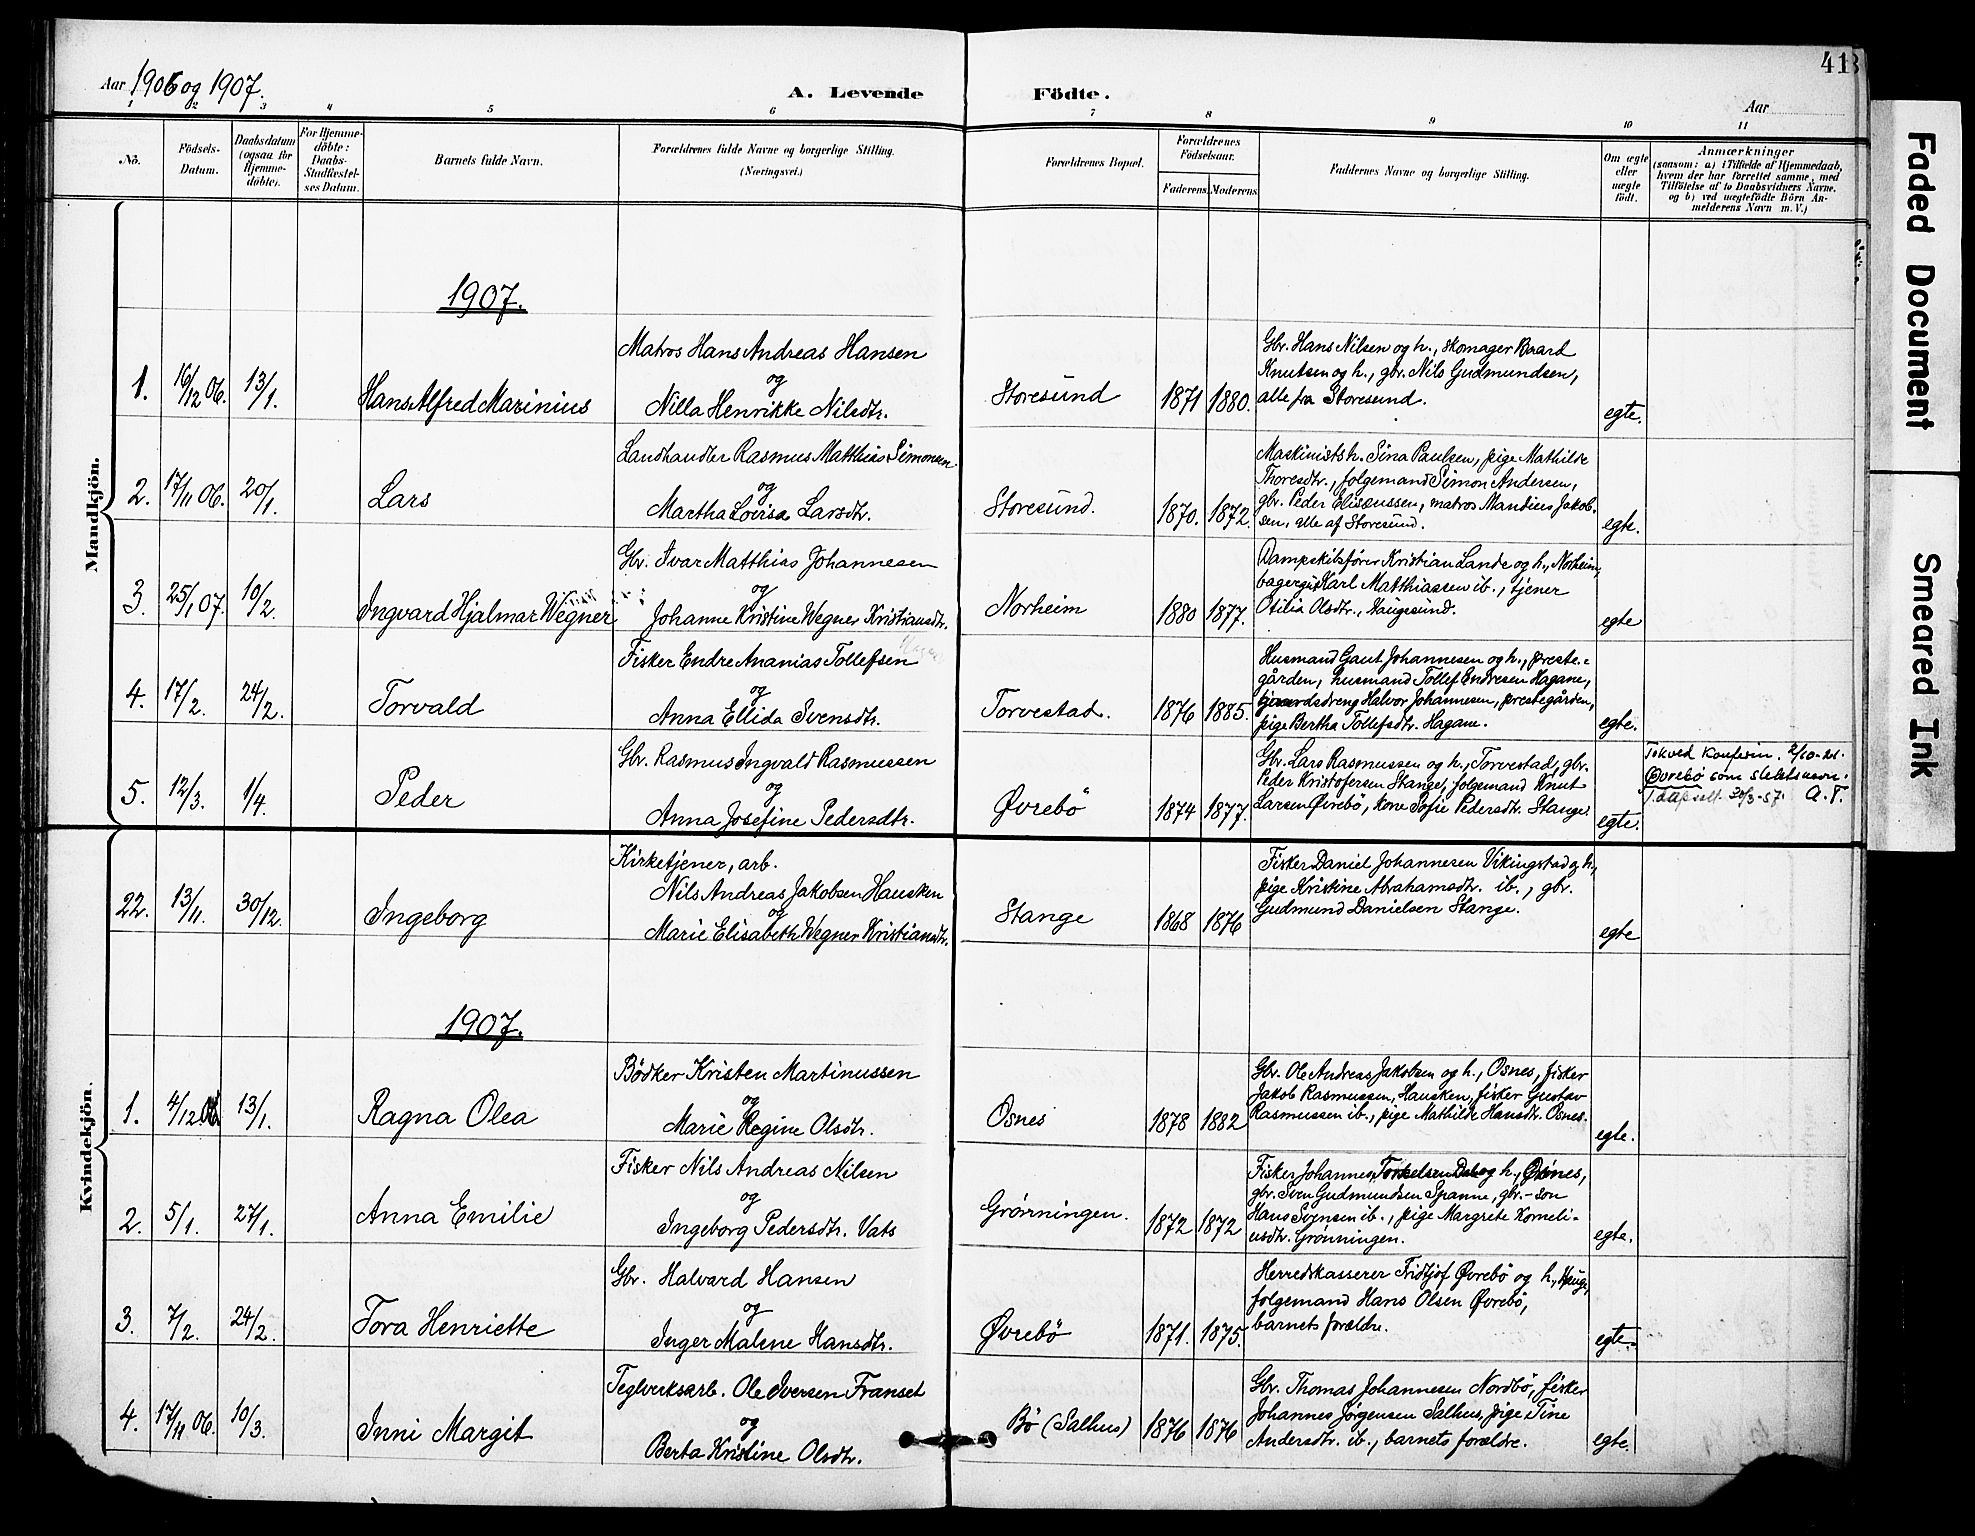 Aar 1906 og 1907.
A. Levende Födte.
Aar
41
1 2 3 4 5 6 7 8 9 10 11
No.
Födsels-Datum.
Daabsdatum (ogsaa for Hjemmedöbte).
For Hjemmedöbte: Daabs-Stadfæstelses Datum.
Barnets fulde Navn.
Forældrenes fulde Navne og borgerlige Stilling.
(Næringsvei.)
Forældrenes Bopæl.
Forældrenes Födselsaar.
Faderens.
Moderens.
Faddernes Navne og borgerlige Stilling.
Om ægte eller uægte født.
Anmærkninger
(saasom: a) i Tilfælde af Hjemmedaab,
hvem der har forrettet samme, med
Tilföielse af to Daabsvidners Navne.
og b) ved uægtefödte Börn An-
melderens Navn m. V.)
Mandkjön.
1907.
1. 16/12 06. 13/1. Hans Alfred Marinius
Matros Hans Andreas Hansen
og
Nilla Henrikke Nilsdtr.
Storesund 1871 1880.
Gbr. Hans Nilsen og h., skomager Baard
Knutsen og h., gbr. Nils Gudmundsen,
alle fra Storesund.
egte.
2. 17/11 06. 20/1. Lars
Landhandler Rasmus Matthias Simonsen
og
Martha Lovisa Larsdtr.
Storesund. 1870. 1872.
Maskinists h. Sina Paulsen, pige Mathilde
Thoresdtr., folgemand Simon Andersen,
gbr. Peder Eliseussen, matros Mandius Jakob-
sen, alle af Storesund.
egte.
3. 25/1 07. 10/2. Ingvard Hjalmar Wegner
Gbr. Ivar Matthias Johannesen
og
Johanne Kristine Wegner Kristiansdtr.
Norheim 1880 1877.
Dampskibsfører Kristian Lande og h., Norheim,
Karl Matthiassen ib., tjener
Otilia Olsdtr., Haugesund.
egte
4. 17/2. 24/2. Torvald
Fisker Endre Ananias Tollefsen
og
Anna Ellida Svensdtr.
Torvestad. 1876 1885.
Husmand Gaut Johannesen og h., preste-
gården, husmand Tollef Endresen Hagane,
Halvor Johannesen, prestegården,
pige Bertha Tollefsdtr. Hagane.
egte.
5. 12/3. 1/4. Peder
Gbr. Rasmus Ingvald Rasmussen
og
Anna Josefine Pedersdtr.
Øvrebö 1874 1877.
Gbr. Lars Rasmussen og h., Torvestad, gbr.
Peder Kristofersen Stange, folgemand Knut
Larsen Øvrebö, kone Sofie Pedersdtr. Stange.
egte.
Tok ved Konfirm. 2/10-21.
Øvrebö som slektsnavn.
A.T.
Kvindekjön.
22. 13/11. 30/12. Ingeborg
Kirketjener, arb.
Nils Andreas Jakobsen Hausken
og
Marie Elisabeth Wegner Kristiansdtr.
Stange 1868 1876
Fisker Daniel Johannesen Vikingstad og h.,
pige Kristine Abrahamsdtr. ib., gbr.
Gudmund Danielsen Stange.
egte
1907.
1. 4/12 06. 13/1. Ragna Olea
Bödker Kristen Martinussen
og
Marie Regine Olsdtr.
Osnes 1878 1882
Gbr. Ole Andreas Jakobsen og h., Osnes, fisker
Jakob Rasmussen, Hausken, fisker Gustav
Rasmussen ib., pige Mathilde Hansdtr. Osnes.
egte.
2. 5/1. 27/1. Anna Emilie
Fisker Nils Andreas Nilsen
og
Ingeborg Pedersdtr. Vats
Grønningen. 1872 1872
Fisker Johannes Torkelsen og h.,
gbr. Sven Gudmundsen Spanne, gbr.-søn
Hans Svensen ib., pige Margrete Korneli-
usdtr. Grønningen.
egte.
3. 7/2. 24/2. Tora Henriette
Gbr. Halvard Hansen
og
Inger Malene Hansdtr.
Øvrebö 1871. 1875.
Herredskasserer Fridtjof Øvrebö og h., Hauge,
folgemand Hans Olsen Øvrebö,
barnets forældre.
egte.
4. 17/11 06. 10/3. Inni Margit
Teglverksarb. Ole Iversen Franset
og
Berta Kristine Olsdtr.
Bö (Salhus) 1876 1876
Gbr. Thomas Johannesen Nordbö, fisker
Johannes Jörgensen Salhus, pige Tine
Andersdtr. ib., barnets forældre.
egte.
Faded Document
Smeared Ink